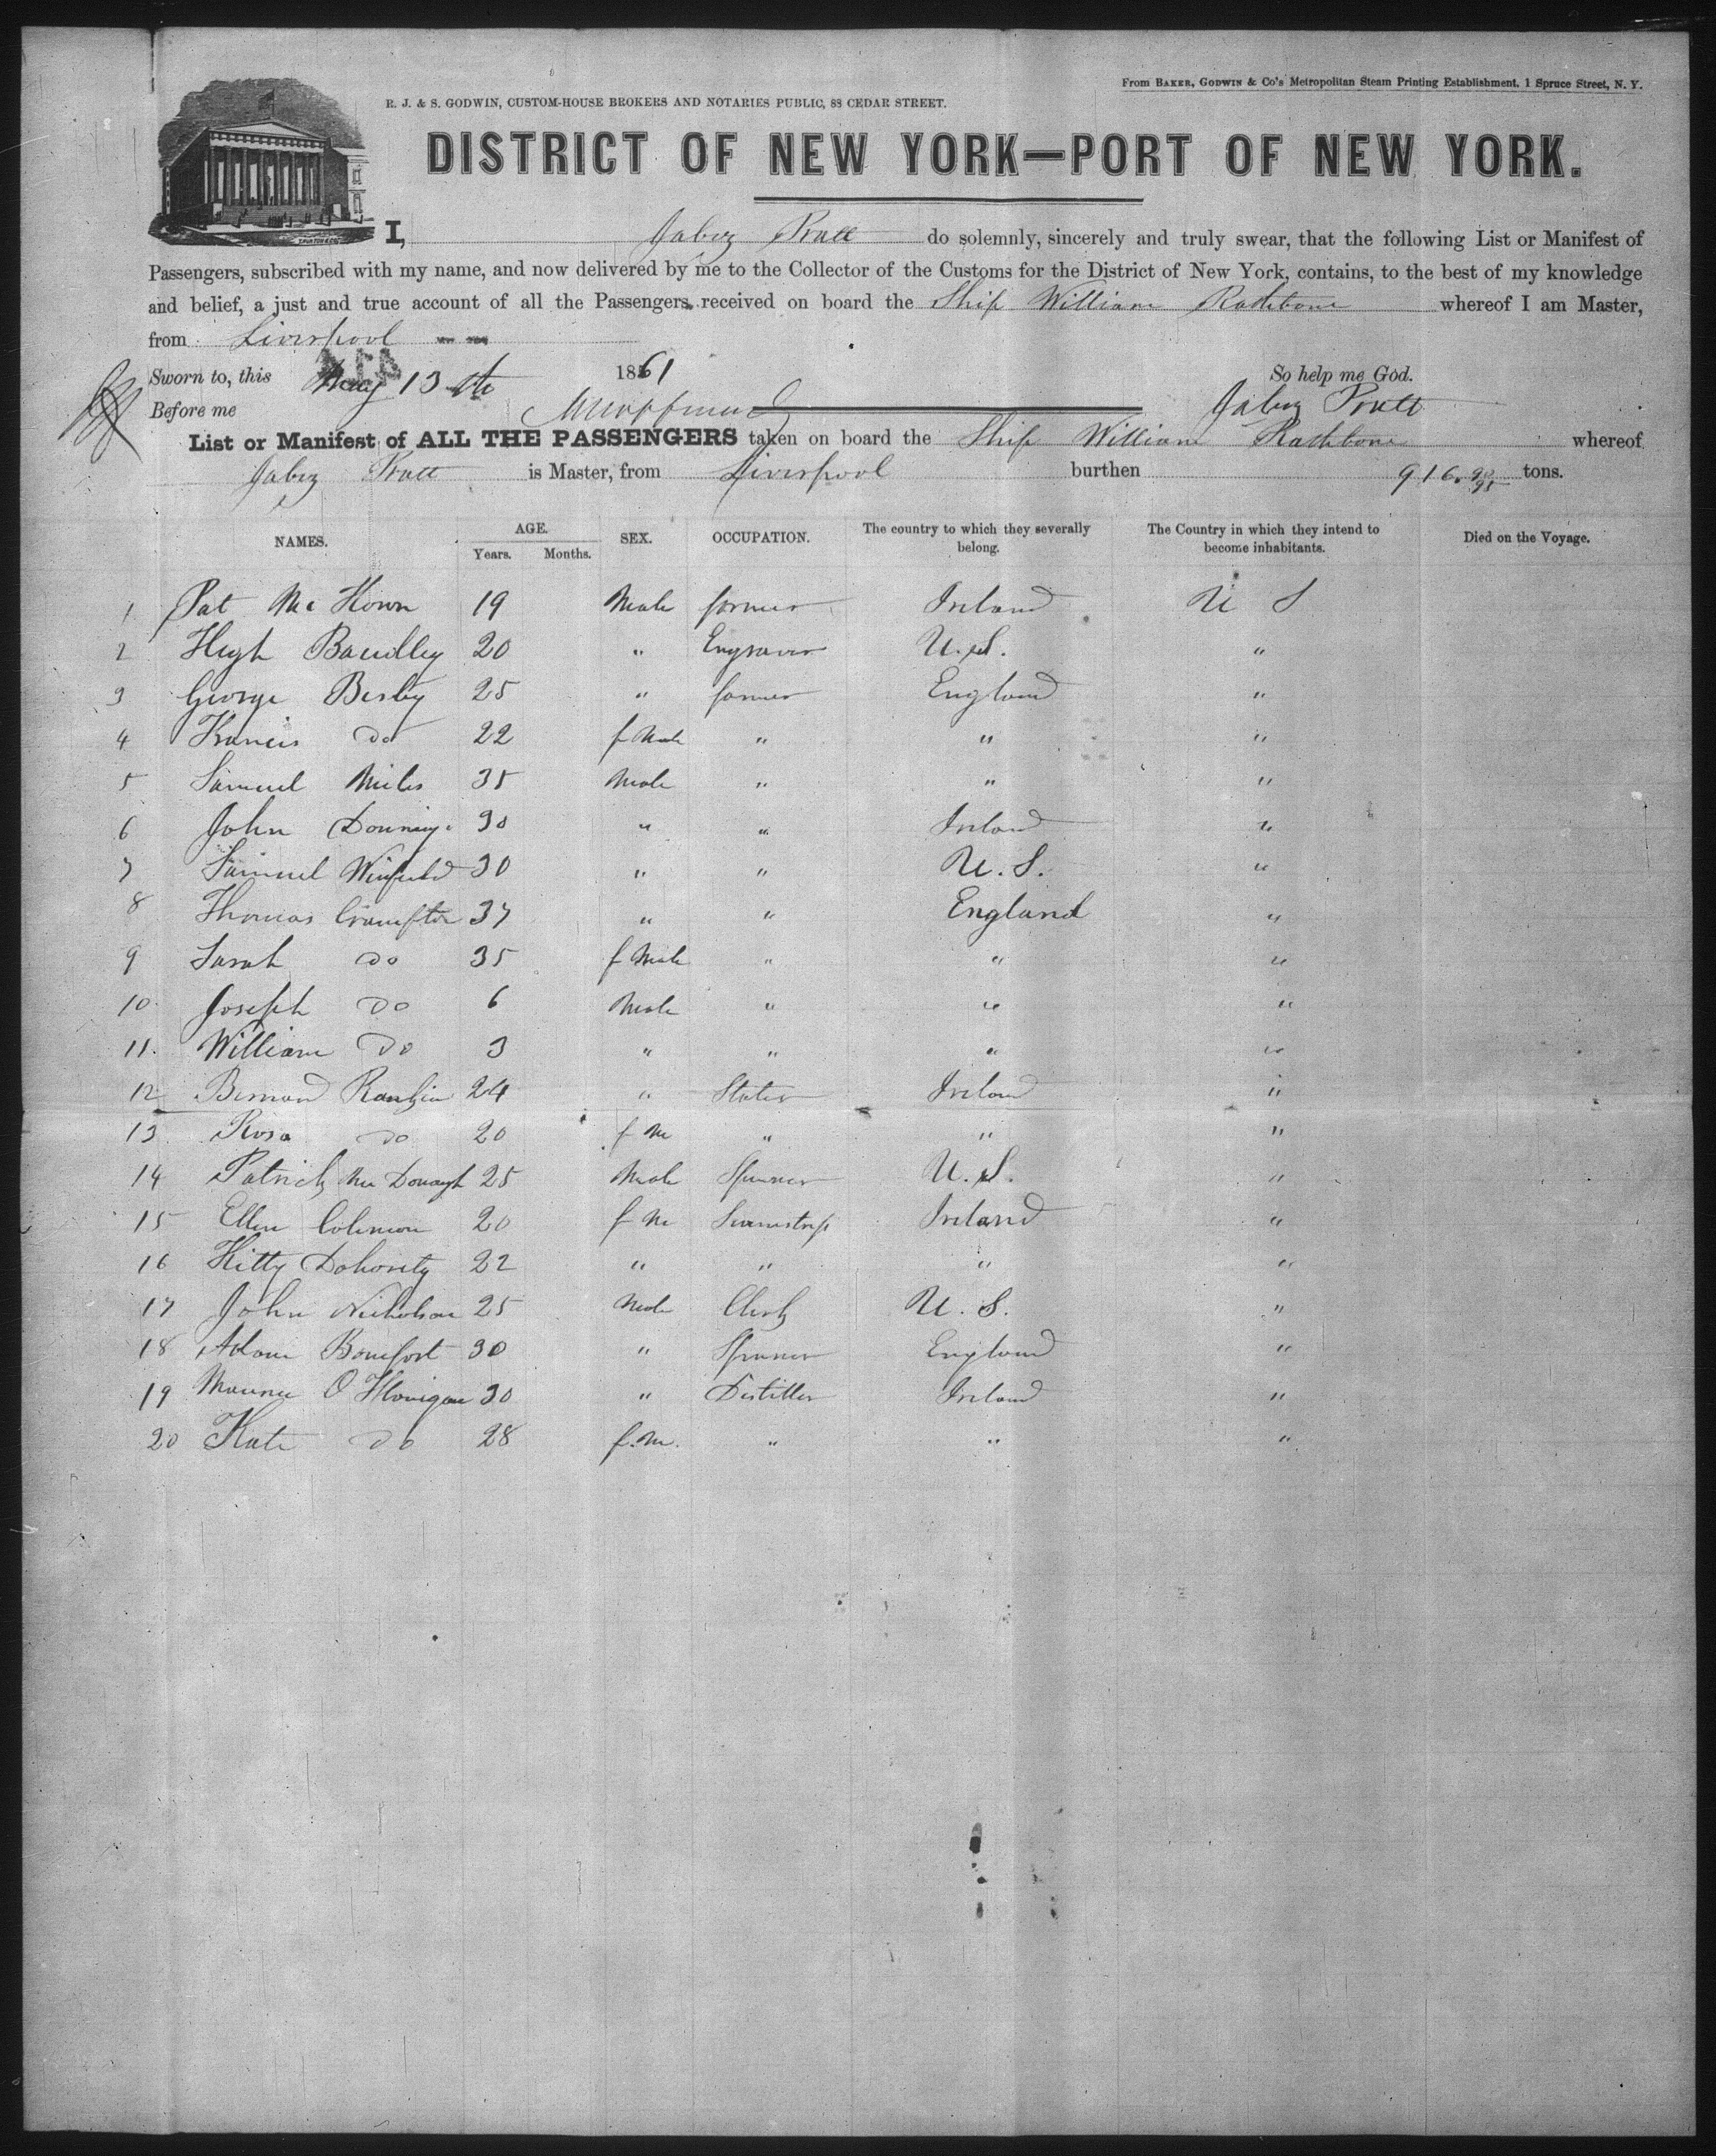 From BAKER, GODWIN & Co's Metropolitan Steam Printing Establishment, 1 Spruce Street, N. Y.
R. J. & S. GODWIN, CUSTOM-HOUSE BROKERS AND NOTARIES PUBLIC, 88 CEDAR STREET.
DISTRICT OF NEW YORK—PORT OF NEW YORK.
I, Jabez Pratt do solemnly, sincerely and truly swear, that the following List or Manifest of
Passengers, subscribed with my name, and now delivered by me to the Collector of the Customs for the District of New York, contains, to the best of my knowledge
and belief, a just and true account of all the Passengers received on board the Ship William Rathbone whereof I am Master,
from Liverpool
Sworn to, this May 13th 1861 So help me God.
Before me Jabez Pratt
List or Manifest of ALL THE PASSENGERS taken on board the Ship William Rathbone whereof
Jabez Pratt is Master, from Liverpool burthen 916. 90/95 tons.
NAMES. AGE. Years. Months. SEX. OCCUPATION. The country to which they severally belong. The Country in which they intend to become inhabitants. Died on the Voyage.
1 Pat Mc Kown 19 Male farmer Ireland U S
2 Hugh Baudley 20 " Engraver U.S. "
3 George Besby 25 " farmer England "
4 Francis do 22 f Male " " "
5 Samuel Miles 35 Male " " "
6 John Downey 30 " " Ireland "
7 Samuel Winfield 30 " " U.S. "
8 Thomas Crampton 37 " " England "
9 Sarah do 35 f Male " " "
10 Joseph do 6 Male " " "
11. William do 3 " " " "
12 Bernard Rankin 24 " Slater Ireland "
13 Rosa do 20 f M " " "
14 Patrick Mc Donagh 25 Male Spinner U.S. "
15 Ellen Coleman 20 f M Seamstress Ireland "
16 Kitty Dohority 22 " " " "
17 John Nicholson 25 Male Clerk U.S. "
18 Adam Bonefort 30 " Spinner England "
19 Maurice O Honigan 30 " Distiller Ireland "
20 Kate do 28 f.M. " " "